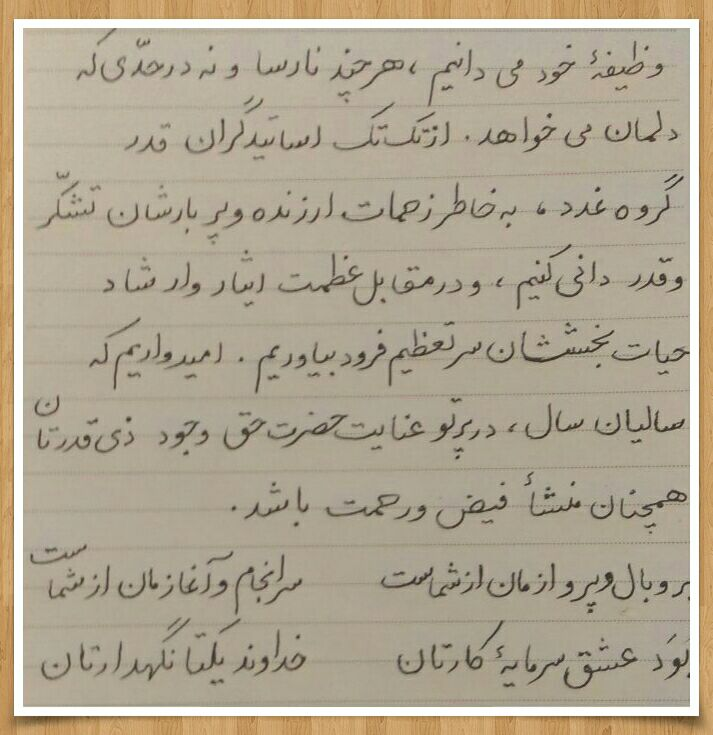 وظیفهٔ خود می دانیم ، هر چند نارسا و نه در حدّی که
دلمان می خواهد . از تک تک اساتید گران قدر
گروه غدد ، به خاطر زحمات ارزنده و پر بارشان تشکّر
و قدر دانی کنیم ، و در مقابل عظمت ایثار و ارشاد
حیات بخششان سر تعظیم فرود بیاوریم . امیدواریم که
سالیان سال ، در پرتو عنایت حضرت حق وجود ذی قدرتان
همچنان منشأ فیض و رحمت باشد .
پر و بال و پروازمان از شماست سرانجام و آغازمان از شماست
بُوَد عشق سرمایهٔ کارتان خداوند یکتا نگهدارتان